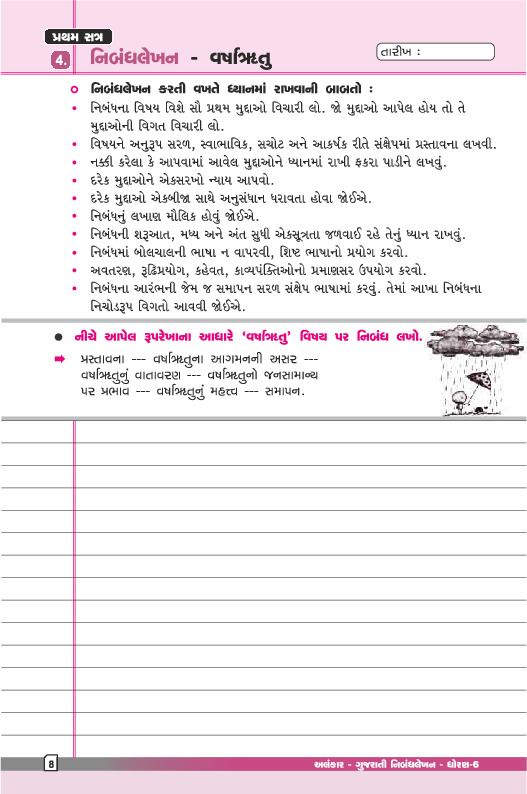 પ્રથમ સત્ર
4. નિબંધલેખન - વર્ષાઋતુ
તારીખ :
નિબંધલેખન કરતી વખતે ધ્યાનમાં રાખવાની બાબતો :
• નિબંધના વિષય વિશે સૌ પ્રથમ મુદ્દાઓ વિચારી લો. જો મુદ્દાઓ આપેલ હોય તો તે
મુદ્દાઓની વિગત વિચારી લો.
• વિષયને અનુરૂપ સરળ, સ્વાભાવિક, સચોટ અને આકર્ષક રીતે સંક્ષેપમાં પ્રસ્તાવના લખવી.
• નક્કી કરેલા કે આપવામાં આવેલ મુદ્દાઓને ધ્યાનમાં રાખી ફકરા પાડીને લખવું.
• દરેક મુદ્દાઓને એકસરખો ન્યાય આપવો.
• દરેક મુદ્દાઓ એકબીજા સાથે અનુસંધાન ધરાવતા હોવા જોઈએ.
• નિબંધનું લખાણ મૌલિક હોવું જોઈએ.
• નિબંધની શરૂઆત, મધ્ય અને અંત સુધી એકસૂત્રતા જળવાઈ રહે તેનું ધ્યાન રાખવું.
• નિબંધમાં બોલચાલની ભાષા ન વાપરવી, શિષ્ટ ભાષાનો પ્રયોગ કરવો.
• અવતરણ, રૂઢિપ્રયોગ, કહેવત, કાવ્યપંક્તિઓનો પ્રમાણસર ઉપયોગ કરવો.
• નિબંધના આરંભની જેમ જ સમાપન સરળ સંક્ષેપ ભાષામાં કરવું. તેમાં આખા નિબંધના
નિચોડરૂપ વિગતો આવવી જોઈએ.
● નીચે આપેલ રૂપરેખાના આધારે ‘વર્ષાઋતુ’ વિષય પર નિબંધ લખો.
➡ પ્રસ્તાવના --- વર્ષાઋતુના આગમનની અસર ---
વર્ષાઋતુનું વાતાવરણ --- વર્ષાઋતુનો જનસામાન્ય
પર પ્રભાવ --- વર્ષાઋતુનું મહત્ત્વ --- સમાપન.
8
અલંકાર - ગુજરાતી નિબંધલેખન - ધોરણ-6